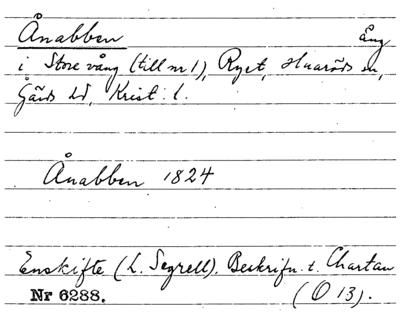 Ånabben äng
i Store vång (till nr 1), Ryet, Huaröds sn,
Gärds hd, Krist. l.
Ånabben 1824
Enskifte (L. Segrell). Beskrifn. t. Chartan
Nr 6288. (O 13).